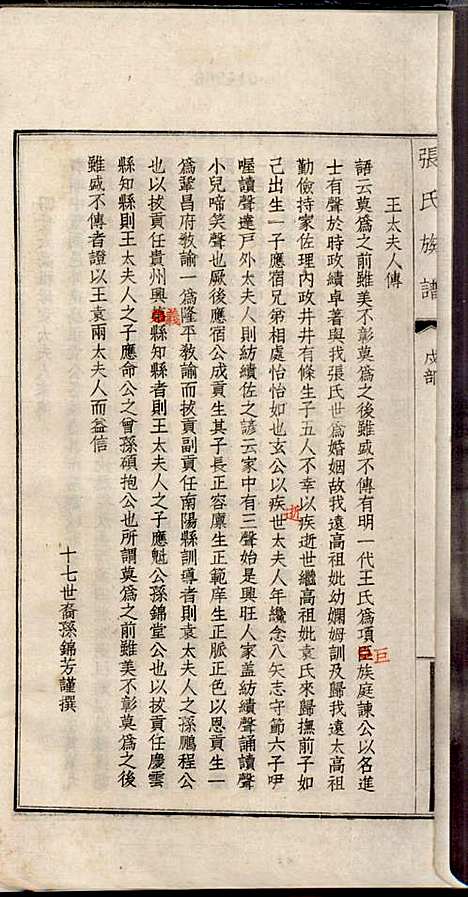 張氏族譜
戍部
王太夫人傳
語云莫為之前雖美不彰莫為之後雖盛不傳有明一代王氏為項巨族庭諫公以名進
士有聲於時政績卓著與我張氏世為婚姻故我遠高祖妣幼嫻姆訓及歸我遠太高祖
勤儉持家佐理內政井井有條生子五人不幸以疾逝世繼高祖妣袁氏來歸撫前子如
己出生一子應宿兄弟相處怡怡如也玄公以疾逝世太夫人年纔念八矢志守節六子咿
喔讀聲達戶外太夫人則紡績佐之諺云家中有三聲始是興旺人家蓋紡績聲誦讀聲
小兒啼笑聲也厥後應宿公成貢生其子長正容廩生正範庠生正脈正色以恩貢生一
為鞏昌府教諭一為隆平教諭而拔貢副貢任南陽縣訓導者則袁太夫人之孫鵬程公
也以拔貢任貴州興義縣知縣者則王太夫人之子應魁公孫錦堂公也以拔貢任慶雲
縣知縣則王太夫人之子應命公之曾孫碩抱公也所謂莫為之前雖美不彰莫為之後
雖盛不傳者證以王袁兩太夫人而益信
十七世裔孫錦芳謹撰